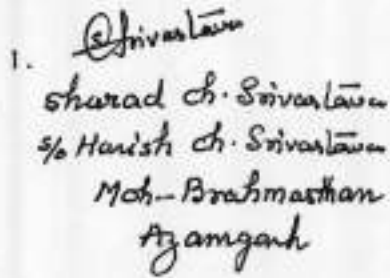 SSrivastava
1.
Sharad Ch. Srivastava
S/o Harish Ch. Srivastava
Moh-Brahmasthan
Azamgarh